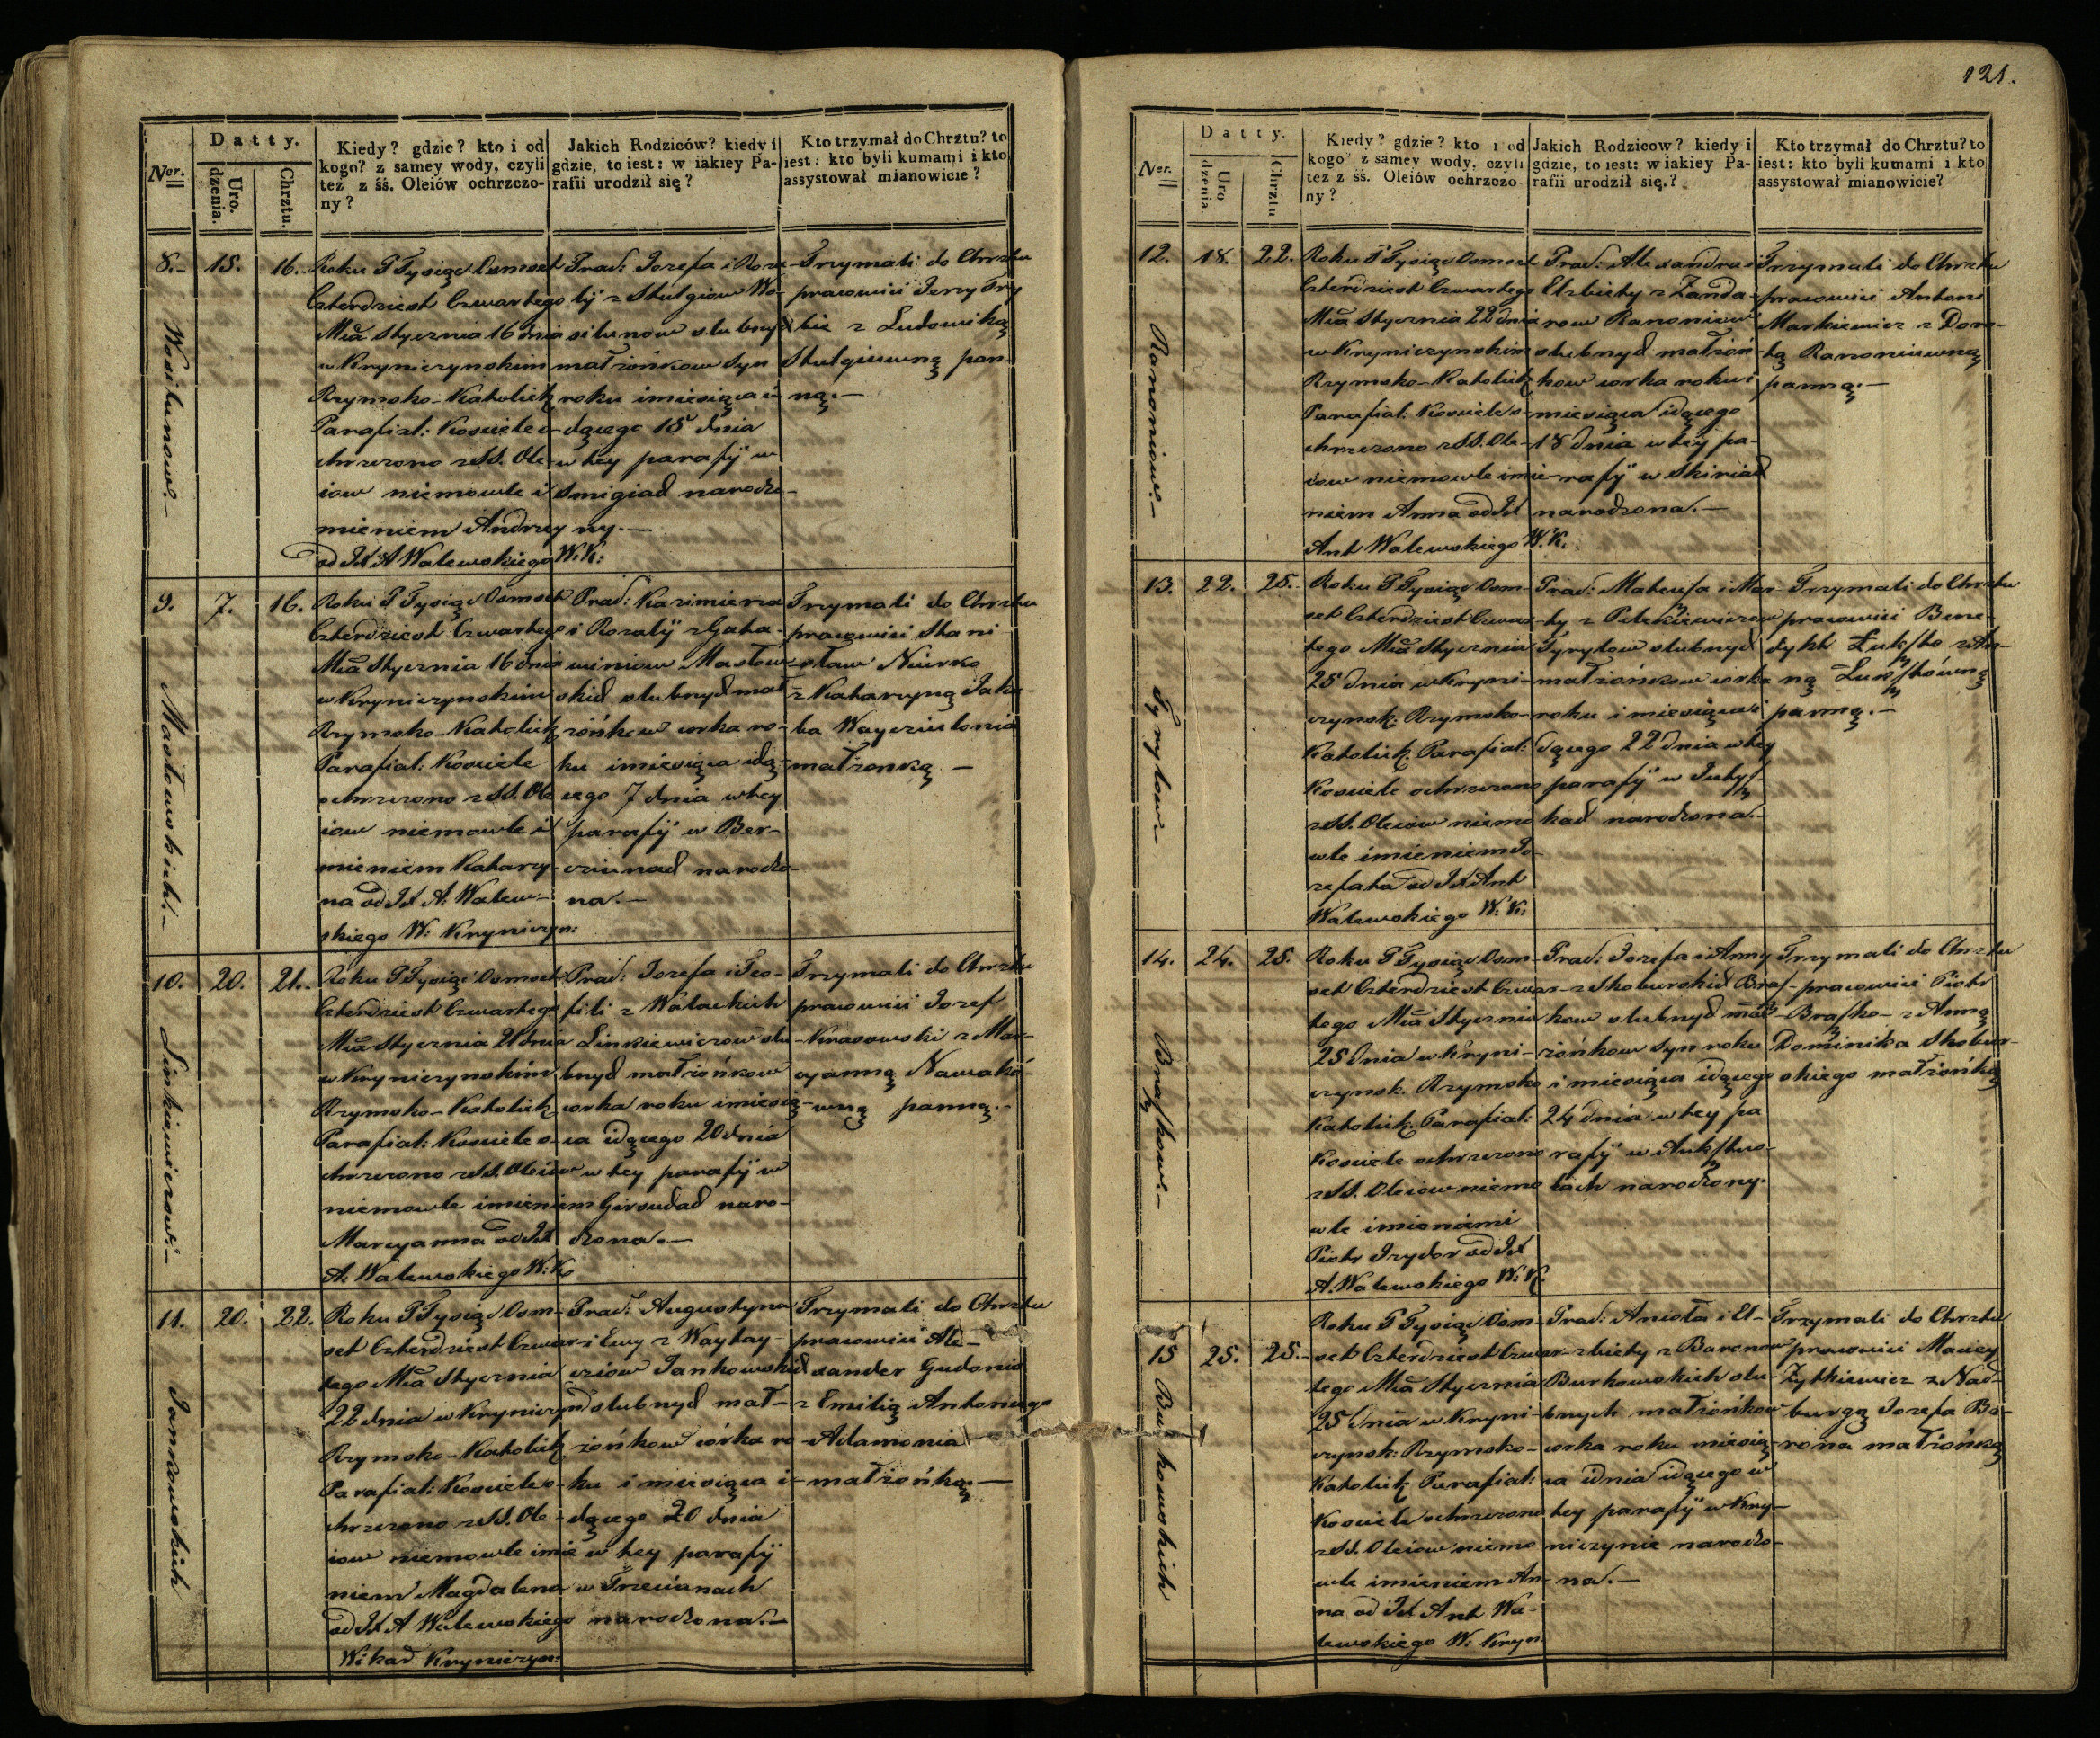 121.
Nor.
Datty.
Uro.
dzenia.
Chrztu.
Kiedy? gdzie? kto i od
kogo? z samey wody, czyli
też z śś. Oleiów ochrzczo-
ny?
Jakich Rodziców? kiedy i
gdzie, to iest: w iakiey Pa-
rafii urodził się?
Kto trzymał do Chrztu? to
iest: kto byli kumami i kto
assystował mianowicie?
8.-
15.
16.-
Wosilunow.-
Roku P Tysiąc Osmset
Czterdziest Czwartego
Mca Stycznia 16 dnia
w Kryniczynskim
Rzymsko-Katolick
Parafial: Kościele o-
chrzczono z SS. Ole
iow niemowle i
mieniem Andrzey
od JX A Walewskiego W.K:
Prac: Jozefa i Roza-
lij z Stulgiow Wo-
silunow slubnych
małżonkow syn
roku i miesiąca i
dącego 15 dnia
w tey parafij w
Smigiach narodzo-
ny.-
Trzymali do Chrztu
pracowici Jerzy Try
bie z Ludowiką
Stulgiuwną pan-
ną.-
9.
7.
16.
Masłowskich-
Roku P Tysiąc Osmset
Czterdziest Czwartego
Mca Stycznia 16 dnia
w Krynicyznskim
Rzymsko-Katolick
Parafial: Kościele
ochrzczono z SS. Ole
iow niemowle i
mieniem Katarzy-
na od JX A. Walew-
skiego W: Kryniczyn:
Prac: Kazimierza
i Rozalij z Gata-
winiow Masłow-
skich slubnych mał-
żońkow corka ro-
ku i miesiąca idą-
cego 7 dnia w tey
parafij w Ber-
cziunach narodzo-
na.-
Trzymali do Chrztu
pracowici Stani
sław Niurko
z Katarzyną Jaku-
ba Wayciulonia
małżonką -
10.
20.
21.-
Linkiewiczow-
Roku P Tysiąc Osmset
Czterdziest Czwartego
Mca Stycznia 21 dnia
w Kryniczynskim
Rzymsko-Katolick
Parafial: Kościele o-
chrzczono z SS. Oleiow
niemowle imieniem
Marcyanna od JX
A. Walewskiego W: K
Prac: Jozefa i Teo-
fili z Wałackich
Linkiewiczow slu-
bnych małżońkow
corka roku i miesią-
ca idącego 20 dnia
w tey parafij w
Girsudach naro-
dzona.-
Trzymali do Chrztu
pracowici Jozef
Krasowski z Mar-
cyanną Nawakó-
wną panną.-
11.
20.
22.
Jankowskich
Roku P Tysiąc Osm-
set Czterdziest Czwar-
tego Mca Stycznia
22 dnia w Kryniczyn
Rzymsko-Katolick
Parafial: Kościele o-
chrzczono z SS. Ole-
iow niemowle imie
niem Magdalena
od JX A Walewskiego
Wikar Kryniczyn:
Prac: Augustyna
i Ewy z Waytay-
cziow Jankowskich
slubnych mał-
żońkow córka ro-
ku i miesiąca i-
dącego 20 dnia
w tey parafij
w Trzecianach
narodzona.-
Trzymali do Chrztu
pracowici Ale-
xander Gudonis
z Emilią Antoniego
Adamonia
małżońką.-
Nor.
Datty.
Uro
dzenia.
Chrztu
Kiedy? gdzie? kto i od
kogo? z samey wody, czyli
też z śś. Oleiów ochrzczo-
ny?
Jakich Rodzicow? kiedy i
gdzie, to iest: w iakiey Pa-
rafii urodził się.?
Kto trzymał do Chrztu? to
iest: kto byli kumami i kto
assystował mianowicie?
12.
18.-
22.
Ranoniow.-
Roku P Tysiąc Osmset
Czterdziest Czwartego
Mca Stycznia 22 dnia
w Kryniczynskim
Rzymsko-Katolick
Parafial: Kościele o-
chrzczono z SS. Ole-
iow niemowle imie-
niem Anna od JX
Ant Walewskiego W. K.
Prac: Alexandra i
Elzbiety z Zanda-
row Ranoniow
slubnych małżoń
kow corka roku i
miesiąca idącego
18 dnia w tey pa-
rafij w Skiriach
narodzona.-
Trzymali do Chrztu
pracowici Antoni
Markiewicz z Doro-
tą Ranoniuwną
panną.-
13.
22.
25.-
Tyrylow-
Roku P Tysiąc Osm-
set Czterdziest Czwar-
tego Mca Stycznia
25 dnia w Kryni-
czynsk: Rzymsko-
Katolick. Parafial:
Kościele ochrzczono
z SS. Oleiow niemo
wle imieniem Jo-
zefata od JX Ant
Walewskiego W: K:
Prac: Mateusza i Mar-
ty z Petekiewiczow
Tyrylow slubnych
małżońkow corka
roku i miesiąca i
dącego 22 dnia w tey
parafij w Jutysz
kach narodzona.-
Trzymali do Chrztu
pracowici Bene-
dykt Łukszto z An-
ną Łuksztówną
panną.-
14.
24.
25.
Braszkow.-
Roku P Tysiąc Osm-
set Czterdziest Czwar-
tego Mca Stycznia
25 dnia w Kryni-
czynsk. Rzymsko
Katolick. Parafial:
Kościele ochrzczono
z SS. Oleiow niemo
wle imioniemi
Piotr Izydor od JX
A. Walewskiego W: K.
Prac: Jozefa i Anny
z Skoburskich Brasz-
kow slubnych mał-
żońkow syn roku
i miesiąca idącego
24 dnia w tey pa
rafij w Auksztwo-
lach narodzony.
Trzymali do Chrztu
pracowici Piotr
Braszko- z Anną
Dominika Skobur-
skiego małżońką
15
25.
25.-
Burkowskich
Roku P Tysiąc Osm-
set Czterdziest Czwar-
tego Mca Stycznia
25 dnia w Kryni-
czynsk: Rzymsko-
Katolick Parafial:
Kościele ochrzczono
z SS. Oleiow niemo
wle imieniem An-
na od JX Ant Wa-
lewskiego W: Kryn.
Prac: Anioła i El-
zbiety z Baronow
Burkowskich slu-
bnych małżońkow
corka roku miesią-
ca i dnia idącego w
tey parafij w Kry-
niczynie narodzo-
na.-
Trzymali do Chrztu
pracowici Maciey
Zytkiewicz z Nad-
burgą Jozefa Ba-
rona małżońką